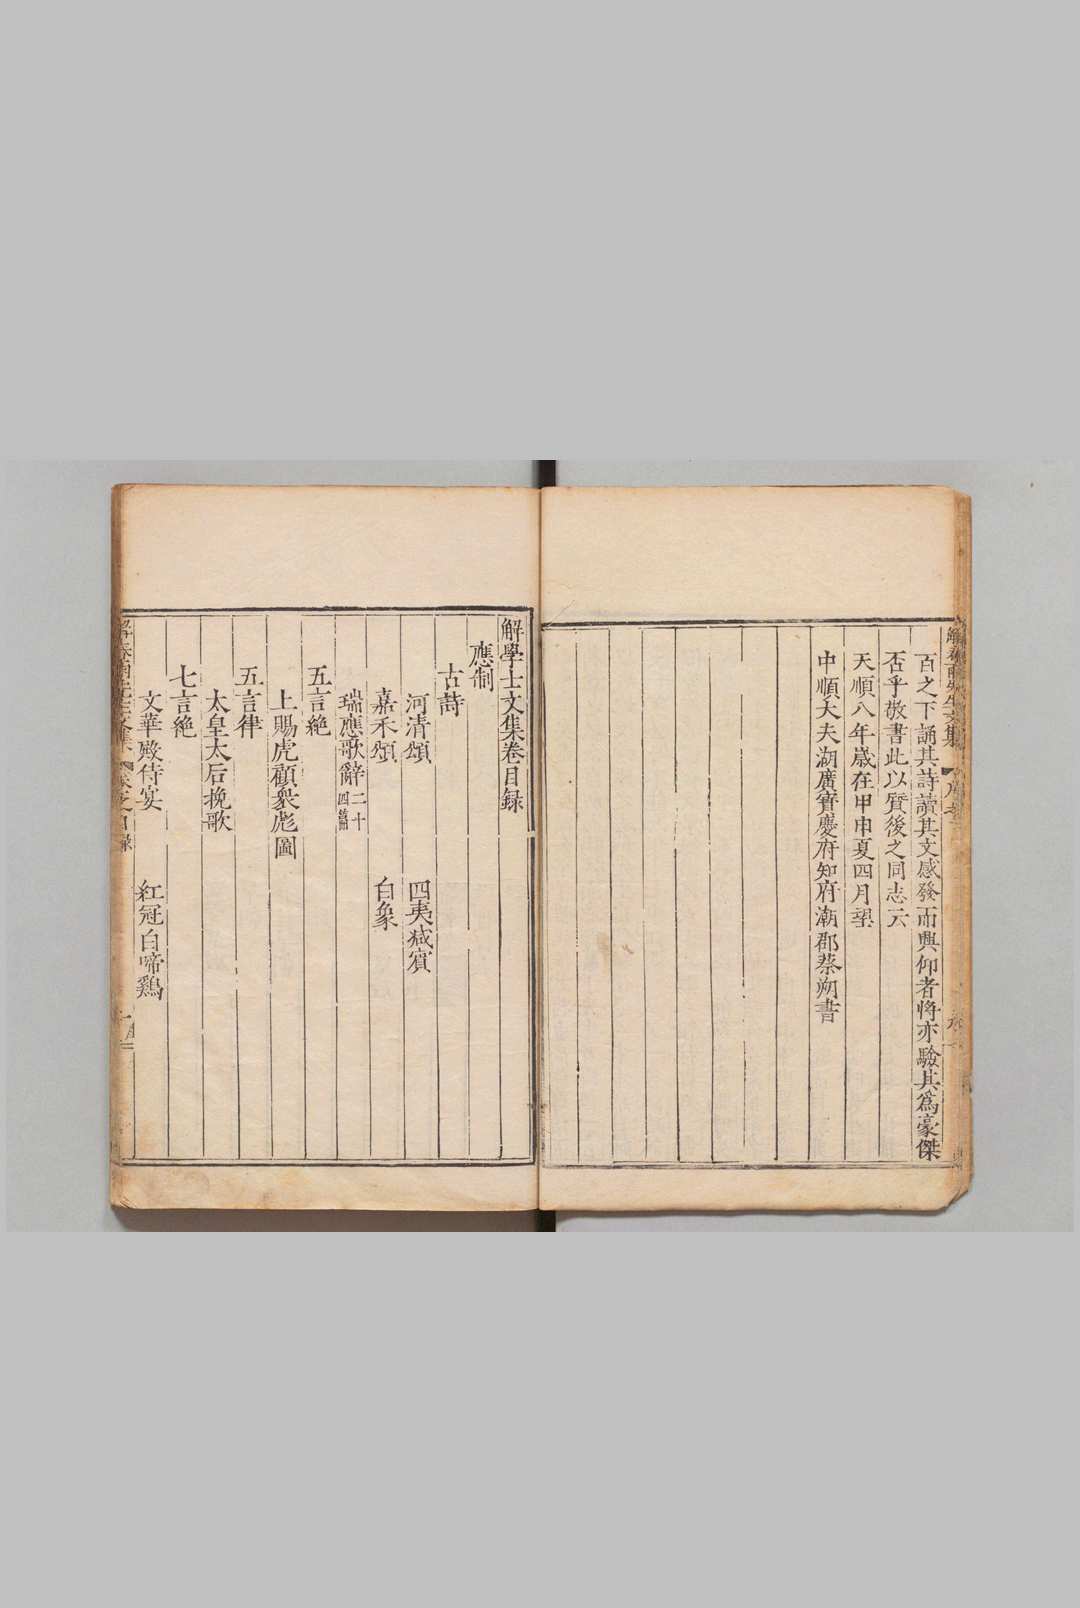 百之下誦其詩讀其文感發而興仰者將亦驗其爲豪傑
否乎敬書此以質後之同志云
天順八年歲在甲申夏四月望
中順大夫湖廣寶慶府知府潮郡蔡朔書
解學士文集卷目録
應制
古詩
河清頌 四夷咸賓
嘉禾頌 白象
瑞應歌辭二十四篇
五言絶
上賜虎顧衆彪圖
五言律
太皇太后挽歌
七言絶
文華殿侍宴 紅冠白啼鷄